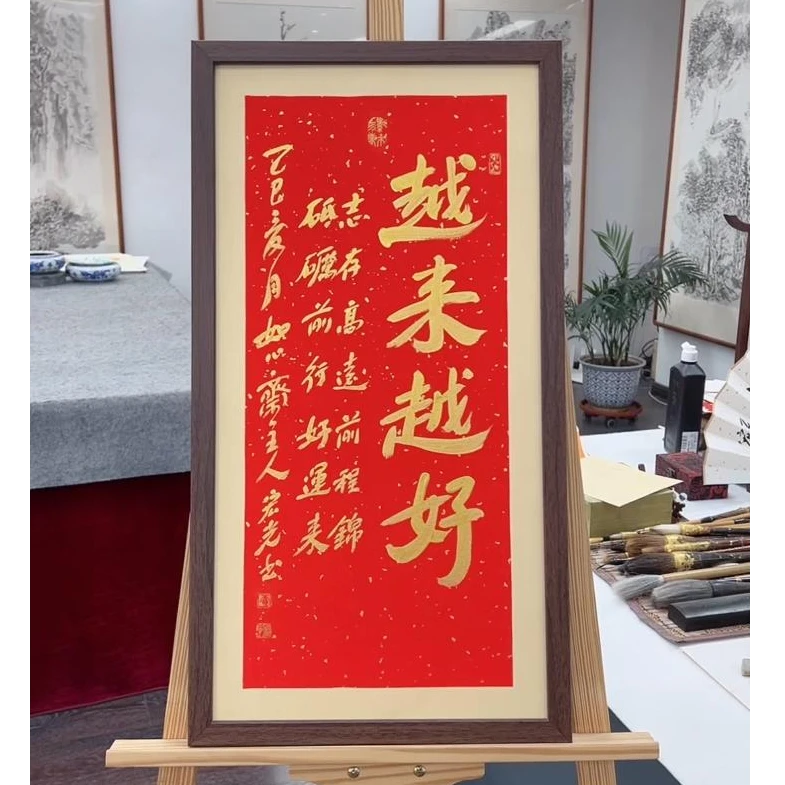 越来越好
志存高遠前程錦
砥礪前行好運来
乙巳亥月如心齋主人宏光书